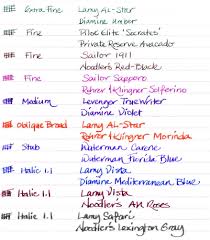 Extra Fine Lamy AL-Star
Diamine Umber
Fine Pilot Elite "Socrates"
Private Reserve Avacado
Fine Sailor 1911
Noodler's Red-Black
Fine Sailor Sapporo
Rohrer & Klingner Solferino
Medium Levenger True Writer
Diamine Violet
Oblique Broad Lamy AL-Star
Rohrer & Klingner Morinda
Stub Waterman Carene
Waterman Florida Blue
Italic 1.1 Lamy Vista
Diamine Mediterranean Blue
Italic 1.1 Lamy Vista
Noodler's Roses
Italic 1.1 Lamy Safari
Noodler's Lexington Gray